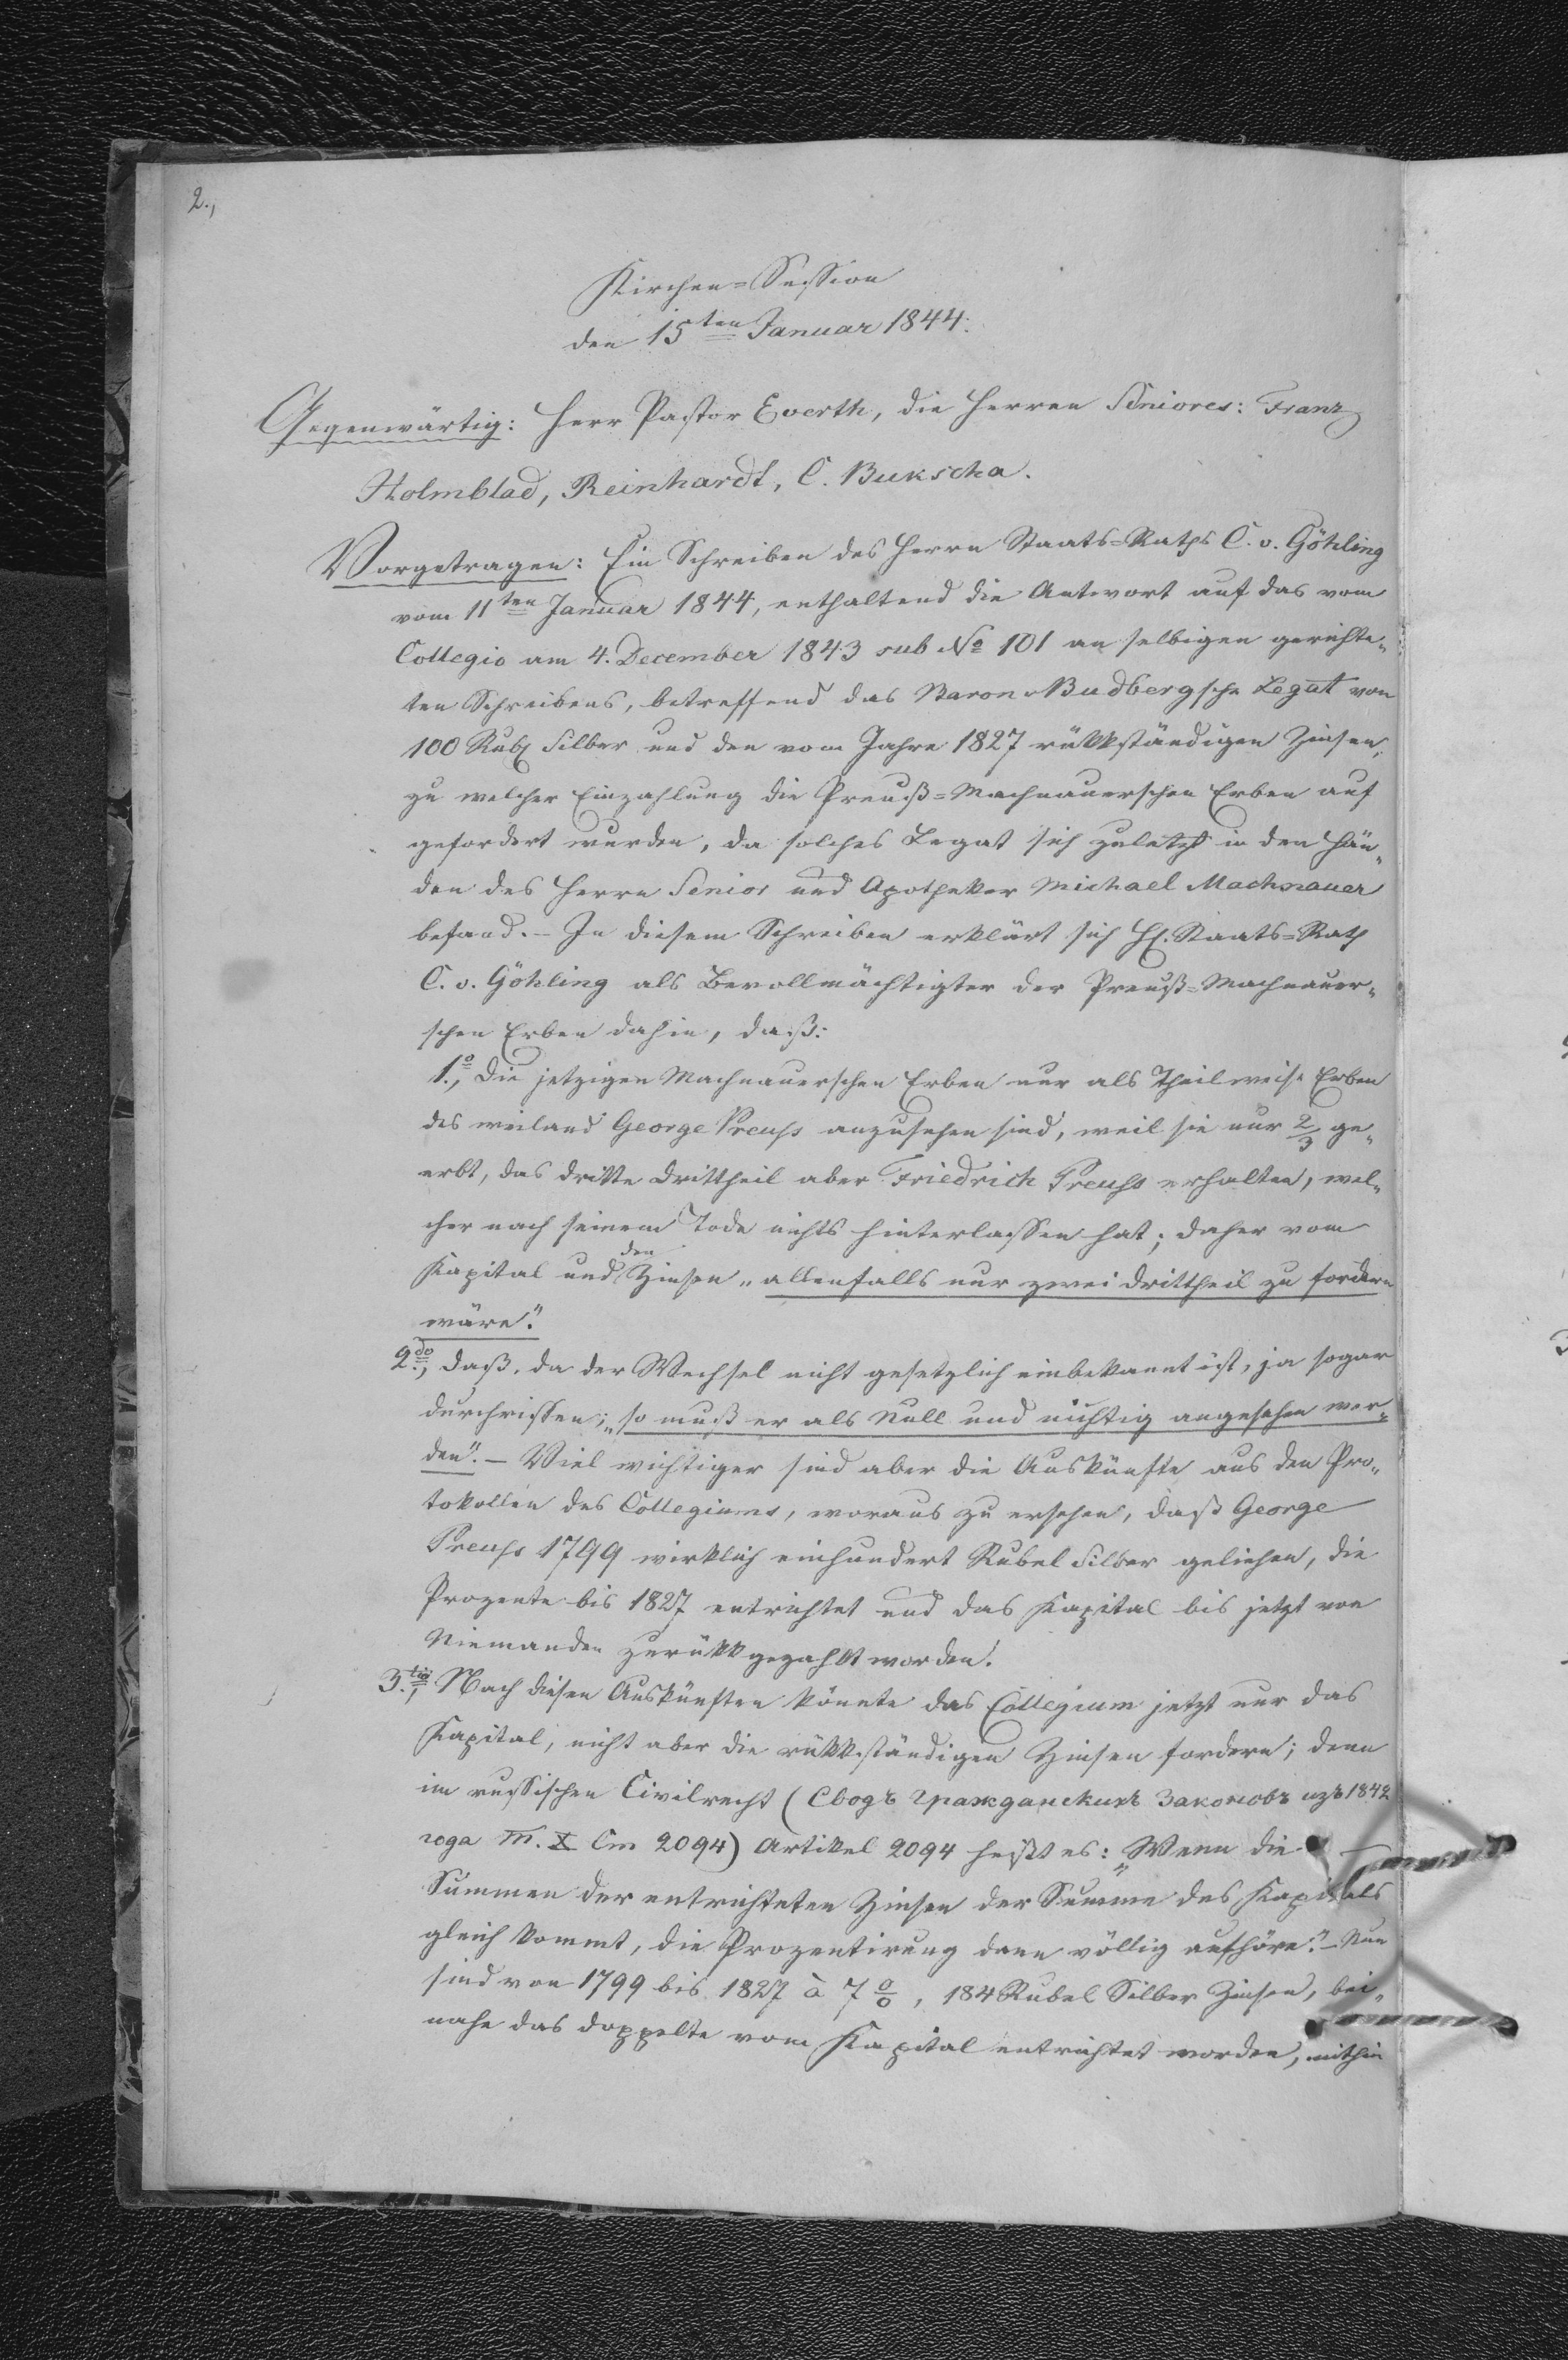 2.,
Kirchen=Session
den 15ten Januar 1844.
Gegenwärtig: Herr Pastor Everth, die Herren Seniores: Franz
Holmblad, Reinhardt, C. Bukscha.
Vorgetragen: Ein Schreiben des Herrn Staats=Raths C. v. Göhling
vom 11ten Januar 1844, enthaltend die Antwort auf das vom
Collegio am 4. December 1843 sub No 101 an selbigen gerichte„
ten Schreibens, betreffend das Baron Budbergsche Legat von
100 Rub. Silber und den vom Jahre 1827 rükkständigen Zinsen,
zu welcher Einzahlung die Preuß=Machnauerschen Erben auf
gefordert wurden, da solches Legat sich zuletzt in den Hän„
den des Herrn Senior und Apotheker Michael Machnauer
befand. – In diesem Schreiben erklärt sich H. Staats=Rath
C. v. Göhling als Bevollmächtigter der Preuß=Machnauer„
schen Erben dahin, daß:
1.o, Die jetzigen Machnauerschen Erben nur als Theilweise Erben
des weiland George Preuss anzusehen sind, weil sie nur 2/3 ge„
erbt, das dritte Drittheil aber Friedrich Preuss erhalten, wel„
cher nach seinem Tode nichts hinterlassen hat; daher vom
Kapital und den Zinsen „allenfalls nur zwei Drittheil zu fordern
wäre."
2.do, daß, da der Wechsel nicht gesetzlich einbekannt ist, ja sogar
durchrissen; „so muß er als Null und nichtig angesehen wer„
den". – Viel wichtiger sind aber die Auskünfte aus den Pro„
tokollen des Collegiums, woraus zu ersehen, daß George
Preuss 1799 wirklich einhundert Rubel Silber geliehen, die
Prozente bis 1827 entrichtet und das Kapital bis jetzt von
Niemanden zurükkgezahlt worden.
3.tio, Nach diesen Auskünften könnte das Collegium jetzt nur das
Kapital, nicht aber die rükkständigen Zinsen fordern; denn
im russischen Civilrecht (Сводъ Гражданскихъ Законовъ изъ 1842
года Т. X Ст 2094) Artikel 2094 heißt es: „Wenn die
Summen der entrichteten Zinsen der Summe des Kapitals
gleich kommt, die Prozentirung dann völlig aufhöre." – Nun
sind von 1799 bis 1827 à 7 o/o, 184 Rubel Silber Zinsen, bei„
nahe das doppelte vom Kapital entrichtet worden, mithin